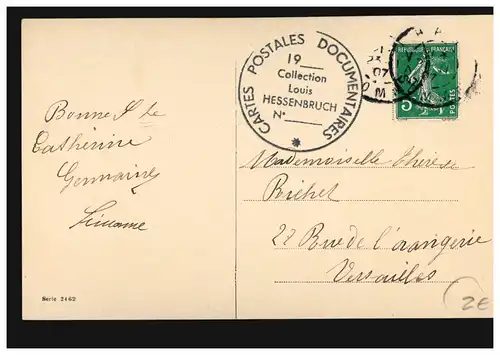 Bonne Ste
Catherine
Germaine
CARTES POSTALES DOCUMENTAIRES
19
Collection
Louis
HESSENBRUCH
N°
REPUBLIQUE FRANÇAISE
5
POSTES
Mademoiselle Thérèse
Richet
22 Rue de l'orangerie
Versailles
Serie 2462
2€